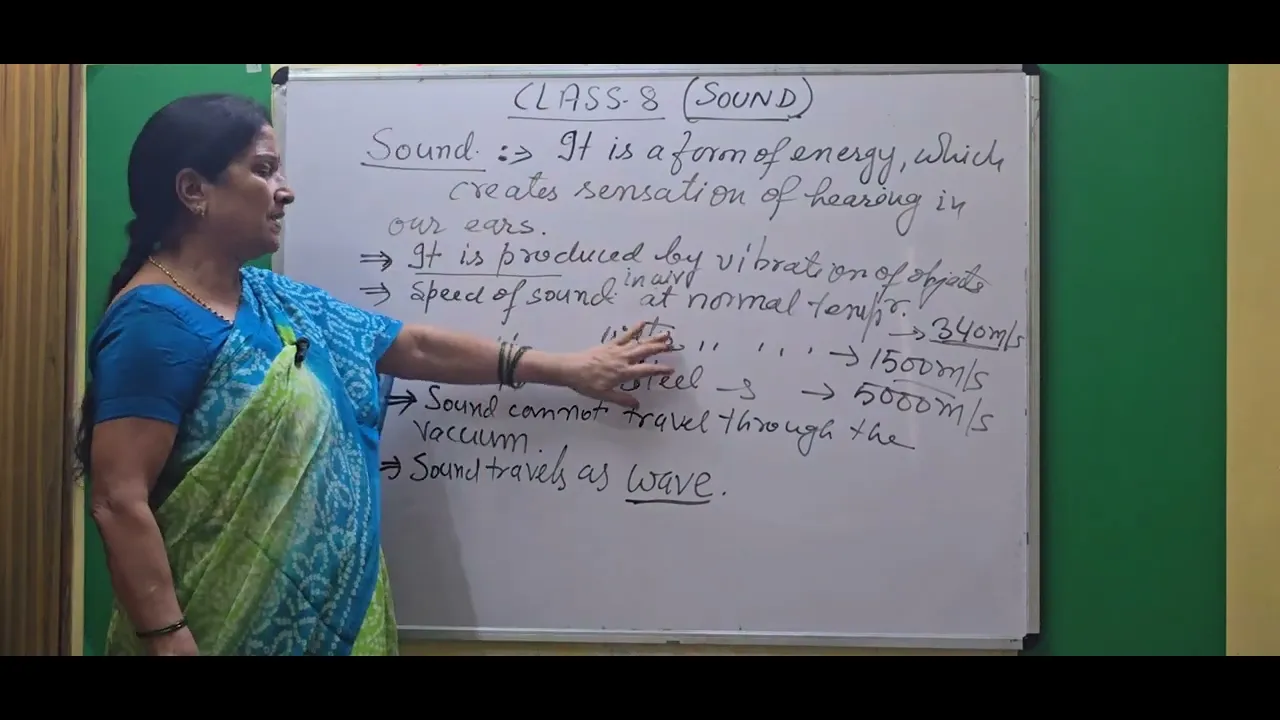 CLASS-8 (SOUND)
Sound :⇒ It is a form of energy, which
creates sensation of hearing in
our ears.
⇒ It is produced by vibration of objects
⇒ Speed of sound in air at normal tempr.
→ 340m/s
,, ,, ,, → 1500m/s
steel → 5000m/s
⇒ Sound cannot travel through the
vacuum.
⇒ Sound travels as wave.